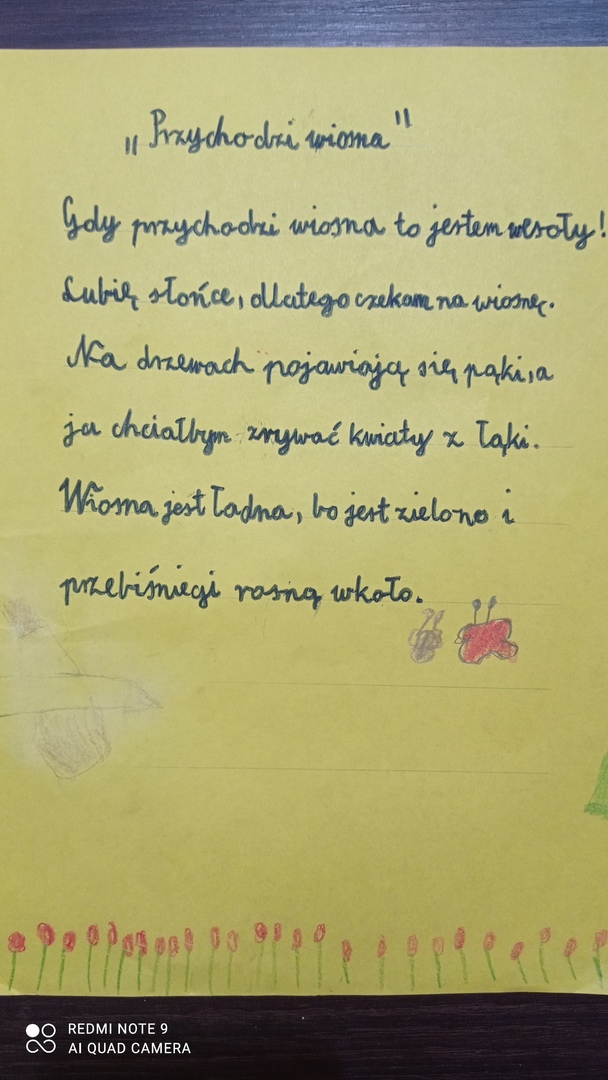 „Przychodzi wiosna"
Gdy przychodzi wiosna to jestem wesoły!
Lubię słońce, dlatego czekam na wiosnę.
Na drzewach pojawiają się pąki, a
ja chciałbym zrywać kwiaty z łąki.
Wiosna jest ładna, bo jest zielono i
przebiśniegi rosną wkoło.
REDMI NOTE 9
AI QUAD CAMERA